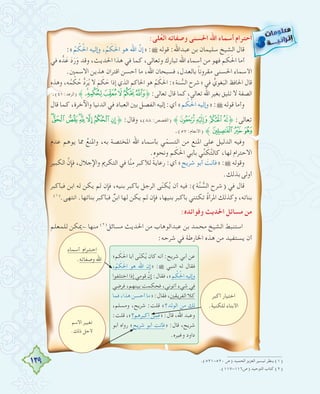 معلومات
إثرائية
احترام أسماء الله الحسنى وصفاته العلى:
قال الشيخ سليمان بن عبدالله: قوله ﷺ: «إن الله هو الحكم، وإليه الحكم»:
أما الحكم فهو من أسماء الله تبارك وتعالى، كما في هذا الحديث، وقد ورد عده في
الأسماء الحسنى مقروناً بالعدل، فسبحان الله، ما أحسن اقتران هذين الاسمين.
قال الحافظ البغوي في «شرح السنة»: الحكم هو الحاكم الذي إذا حكم لا يرد حكمه، وهذه
الصفة لا تليق بغير الله تعالى، كما قال تعالى: ﴿وَاللَّهُ يَحْكُمُ لَا مُعَقِّبَ لِحُكْمِهِ﴾ (الرعد: ٤١).
وأما قوله ﷺ: «وإليه الحكم» أي: إليه الفصل بين العباد في الدنيا والآخرة، كما قال
تعالى: ﴿لَهُ الْحُكْمُ وَإِلَيْهِ تُرْجَعُونَ﴾ (القصص: ٨٨)، وقال: ﴿إِنِ الْحُكْمُ إِلَّا لِلَّهِ يَقُصُّ الْحَقَّ
وَهُوَ خَيْرُ الْفَاصِلِينَ﴾ (الأنعام: ٥٧).
وفيه الدليل على المنع من التسمي بأسماء الله المختصة به، والمنع مما يوهم عدم
الاحترام لها، كالتكني بأبي الحكم ونحوه.
وقوله ﷺ: «فأنت أبو شريح» أي: رعاية للأكبر منا في التكريم والإجلال، فإن الكبير
أولى بذلك.
قال في «شرح السنة»: فيه أن يكنى الرجل بأكبر بنيه، فإن لم يكن له ابن فبأكبر
بناته، وكذلك المرأة تكتني بأكبر بنيها، فإن لم يكن لها ابن فبأكبر بناتها. انتهى.(١)
من مسائل الحديث وفوائده:
استنبط الشيخ محمد بن عبدالوهاب من الحديث مسائل(٢) منها -يمكن للمعلم
أن يستفيد من هذه الخارطة في شرحه:
احترام أسماء
الله وصفاته.
تغيير الاسم
لأجل ذلك.
عن أبي شريح: أنه كان يكنى أبا الحكم؛
فقال له النبي ﷺ: «إن الله هو الحكم،
وإليه الحكم»، فقال: إن قومي إذا اختلفوا
في شيء أتوني، فحكمت بينهم، فرضي
كلا الفريقين، فقال: «ما أحسن هذا، فما
لك من الولد؟» قلت: شريح، ومسلم،
وعبد الله، قال: «فمن أكبرهم؟»، قلت:
شريح، قال: «فأنت أبو شريح» رواه أبو
داود وغيره.
اختيار أكبر
الأبناء للكنية.
(١) ينظر تيسير العزيز الحميد
(٢) كتاب التوحيد
١٣٩